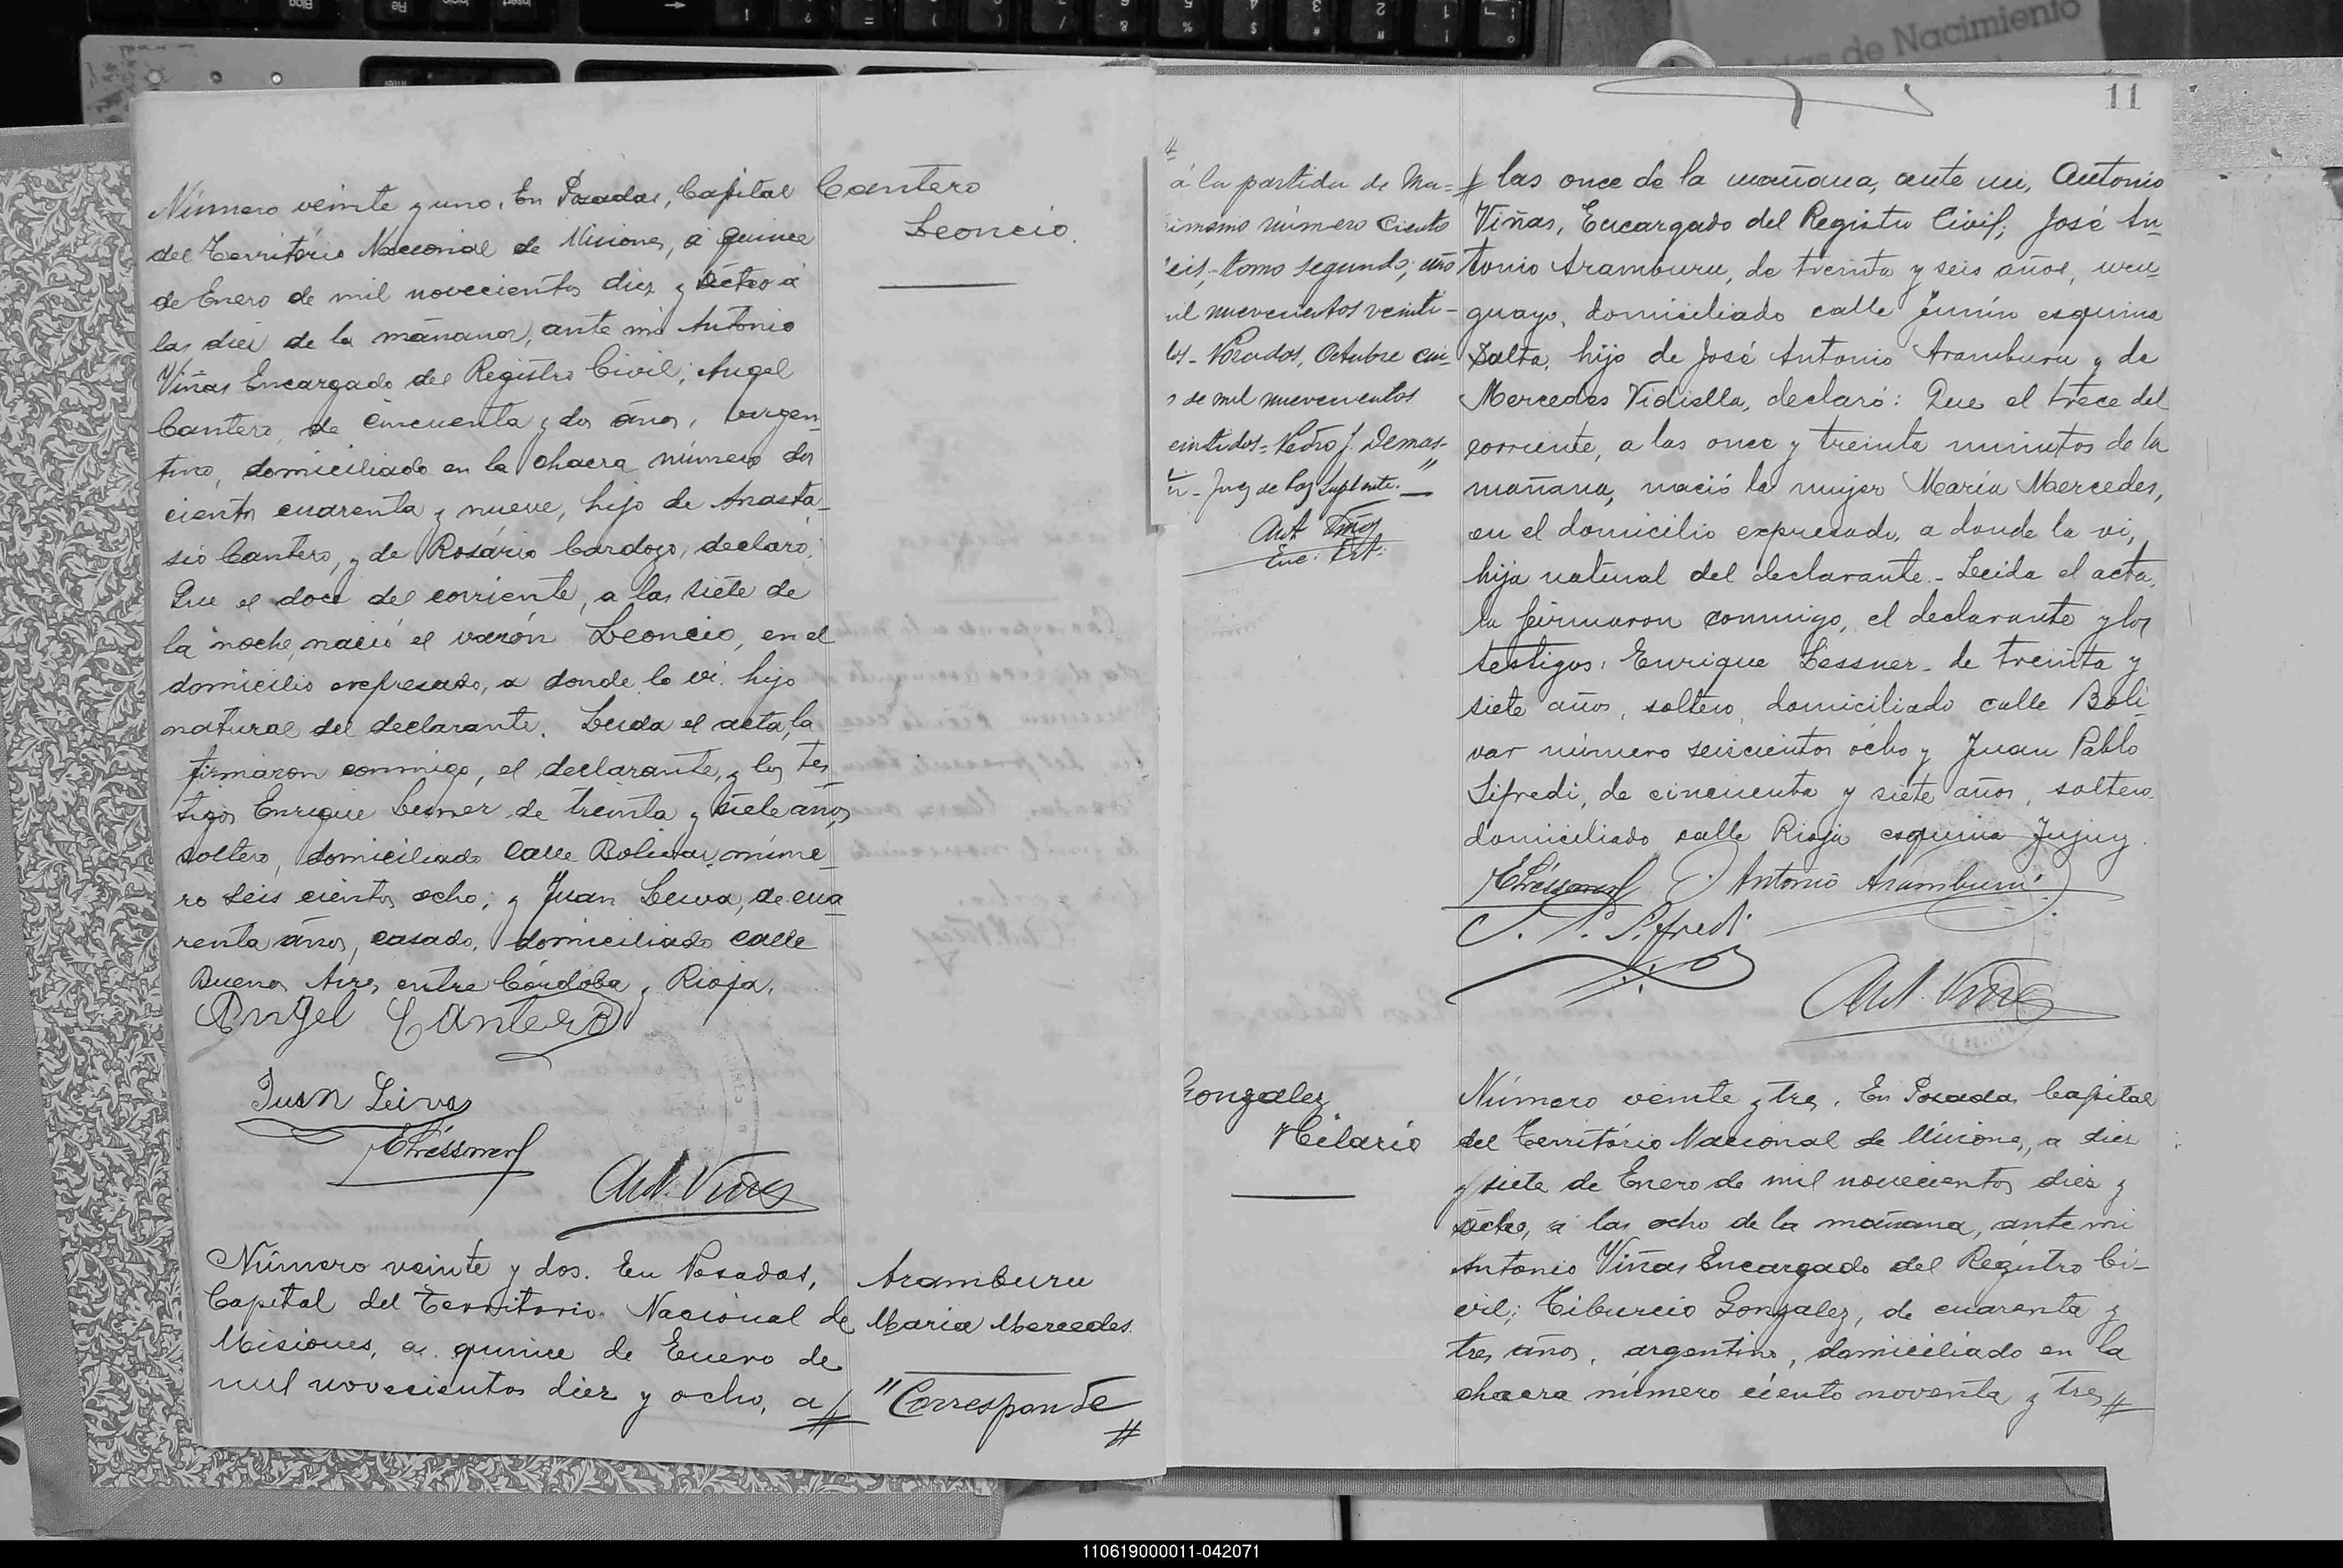 Número veinte y uno. En Posadas, Capital
del Território Nacional de Misiones, á quince
de Enero de mil novecientos diez y ócho á
las diéz de la mãnana, ante mi Antonio
Viñas Encargado del Registro Civil; Angel
Cantero, de cincuenta y dos ános, argen-
tino, domiciliado en la chacra número dos
cientos cuarenta y nueve, hijo de Anasta-
sio Cantero, y de Rosário Cardozo, declaró:
Que el doce del corriente, a las siéte de
la noche, nació el varón Leoncio, en el
domicilio expresado, a donde lo vi. hijo
natural del declarante. Leida el acta, la
firmaron conmigo, el declarante, y los tes
tigos Enrique Lesner de treinta y siete años,
soltero, domiciliado Calle Bolivar, núme-
ro seis cientos ocho; y Juan Leiva, de cua-
renta ános, casado, domiciliado calle
Buenos Aires entre Córdoba y Rioja.
Angel Cantero
Juan Leiva
ELéssner
Ant. Viñas
Número veinte y dos. En Posadas,
Capital del Territorio Nacional de
Misiones, a quince de Enero de
mil novecientos diez y ocho, a //
Cantero
Leoncio.
Aramburu
Maria Mercedes.
"Corresponde
//
11
//
á la partida de Ma=
rimonio número Ciento
eis,-tomo segundo; año
il nuevecientos veinti-
los- Posadas, Octubre
s de mil nuevecientos
eintidos= Pedro J.
Juez de Paz Suplente.
Ant Viñas
Enc.
// las once de la mañana, ante mi, Antonio
Viñas, Encargado del Registro Civil; José An-
tonio Aramburu, de treinta y seis años, uru-
guayo, domiciliado calle Junín esquina
Salta, hijo de José Antonio Aramburu y de
Mercedes Vidiella, declaró: Que el trece del
corriente, a las once y treinta minutos de la
mañana, nació la mujer María Mercedes,
en el domicilio expresado, a donde la vi,
hija natural del declarante.- Leida el acta,
la firmaron conmigo, el declarante y los
testigos: Enrique Lessner- de treinta y
siete años, soltero, domiciliado calle Boli-
var número seiscientos ócho y Juan Pablo
Sifredi, de cincuenta y siete años, soltero.
domiciliado calle Rioja esquina Jujuy.
ELéssner J. Antonio Aramburu
J. P. Sifredi
Ant. Viñas
Gonzalez
Hilario
Número veinte y tres. En Posadas Capital
del Território Nacional de Misiones, a diez
y siete de Enero de mil novecientos diez y
ócho, á las ocho de la mañana, ante mi
Antonio Viñas Encargado del Registro Ci-
vil; Tiburcio Gonzalez, de cuarenta y
tres años, argentino, domiciliado en la
chacra número ciento noventa y tres //
110619000011-042071